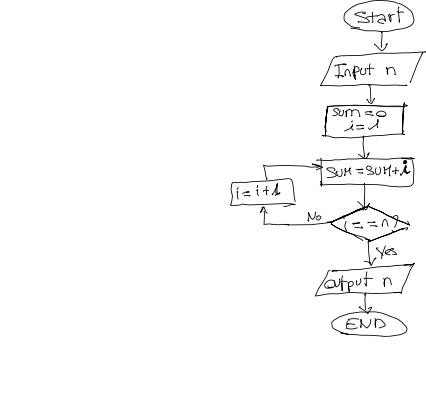 Start
Input n
sum = 0
i = 1
SUM = SUM + i
i = i + 1
No
i = = n?
Yes
Output n
END